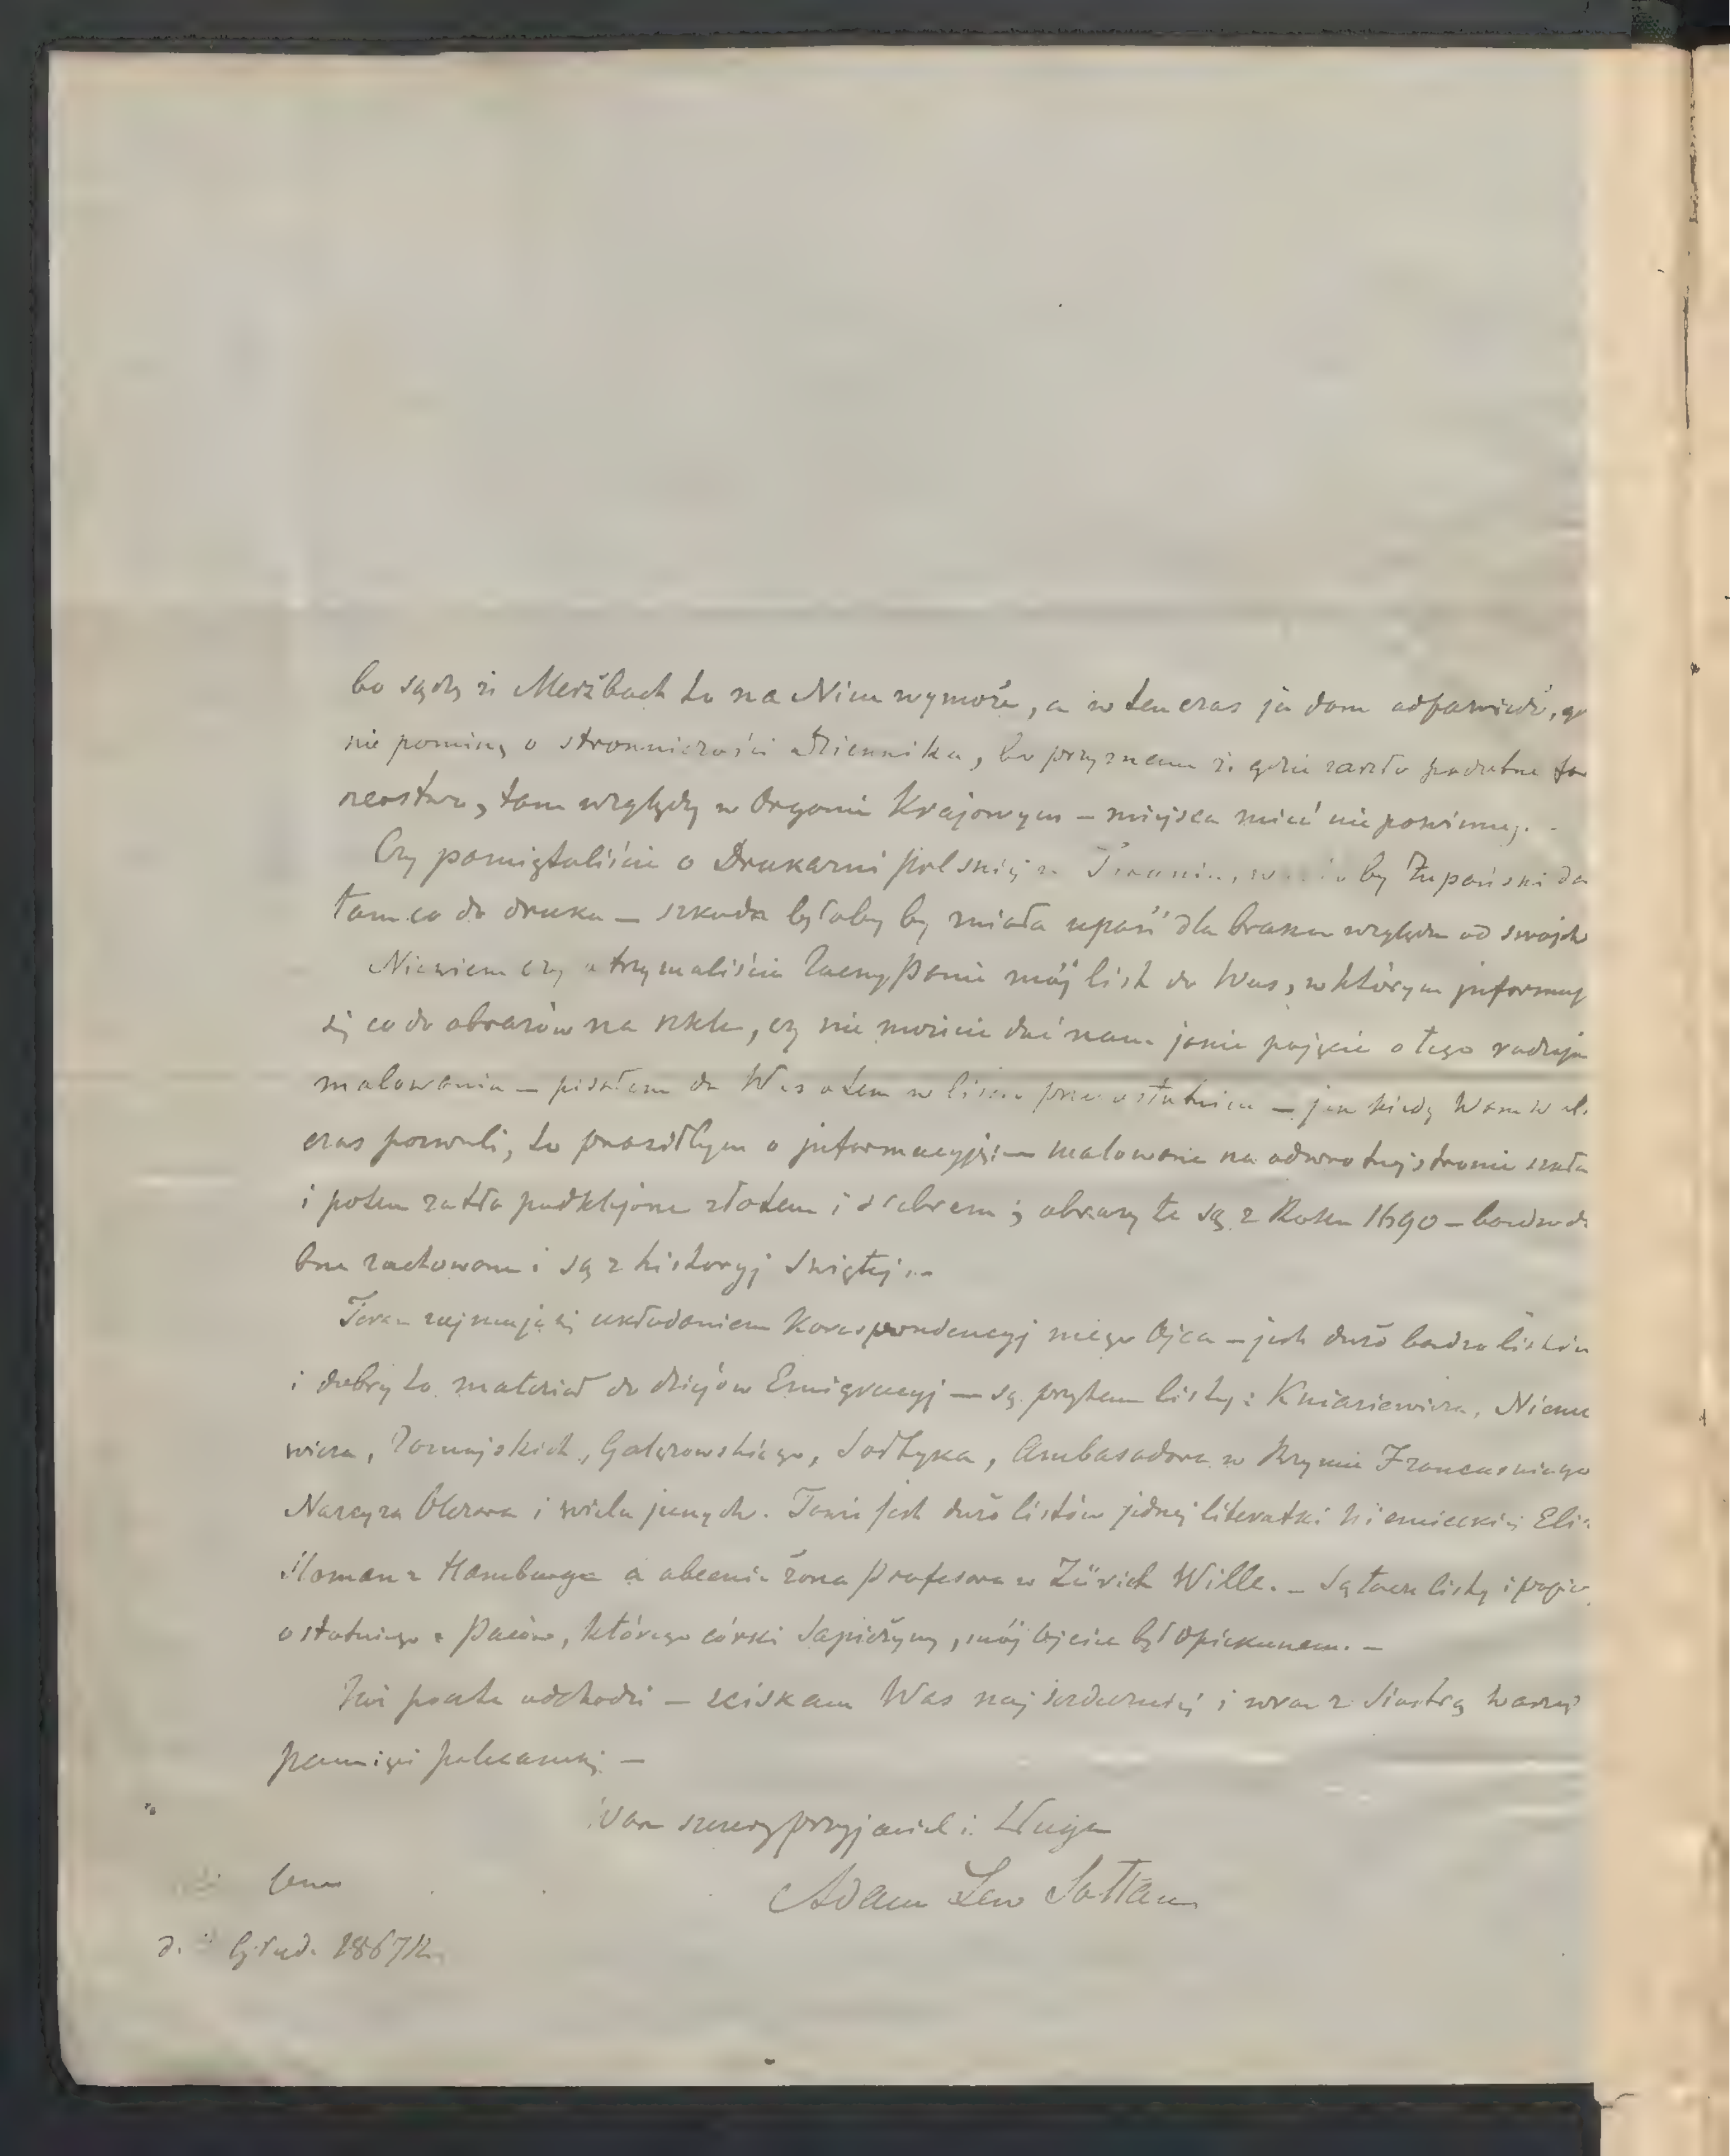 bo sądzę iż Merzbach to na Nim wymoże, a w ten czas ja dam odpowiedź, gd
nie pominę o stronniczości Dziennika, bo przyznam iż gdzie zaszło podobne
tam względy w Organie Krajowym – miejsca mieć nie powinny. -
Czy pamiętaliście o Drukarni polskiej w Toruniu, by Żupański da
tam co do druku – szkoda byłaby by miała upaść dla braku względu od swojch
Niewiem czy otrzymaliście Zacny Panie mój list do Was, w którym jnformuję
się co do obrazów na szkle, czy nie możecie dać nam jakie pojęcie o tego rodzaju
malowania – pisałem do Was o tem w liście przedostatnim – jak kiedy Wam
czas pozwoli, to prosiłbym o jnformacyję: – malowane na odwrotnej stronie szkła
i potem za tło podklejone złotem i srebrem; obrazy te są z Roku 1690 – bardzo do
brze zachowane i są z historyj Swiętej. –
Teraz zajmuję się układaniem Korespondencyj mego Ojca – jest dużo bardzo listów
i dobry to materiał do dziejów Emigracyj – są przytem listy: Kniaziewicza, Niemc
wicza, Zamojskich, Gałęzowskiego, Sołtyka, Ambasadora w Rzymie Francuskiego
Narcyza Olizara i wielu jnnych. Tamże jest dużo listów jednej literatki Niemieckiej Eli
Sloman z Hamburga a obecnie żona Profesora w Zürich Wille. – Są także listy i papie
ostatniego z Paców, którego córki Sapieżyny, mój Ojciec był opiekunem. –
Już poczta odchodzi – sciskam Was najserdeczniej i wraz z Siostrą waszej
pamięci polecamy –
Wasz szczery przyjaciel i Sługa
Adam Lew Sołtan
d. Grud. 1867 R.